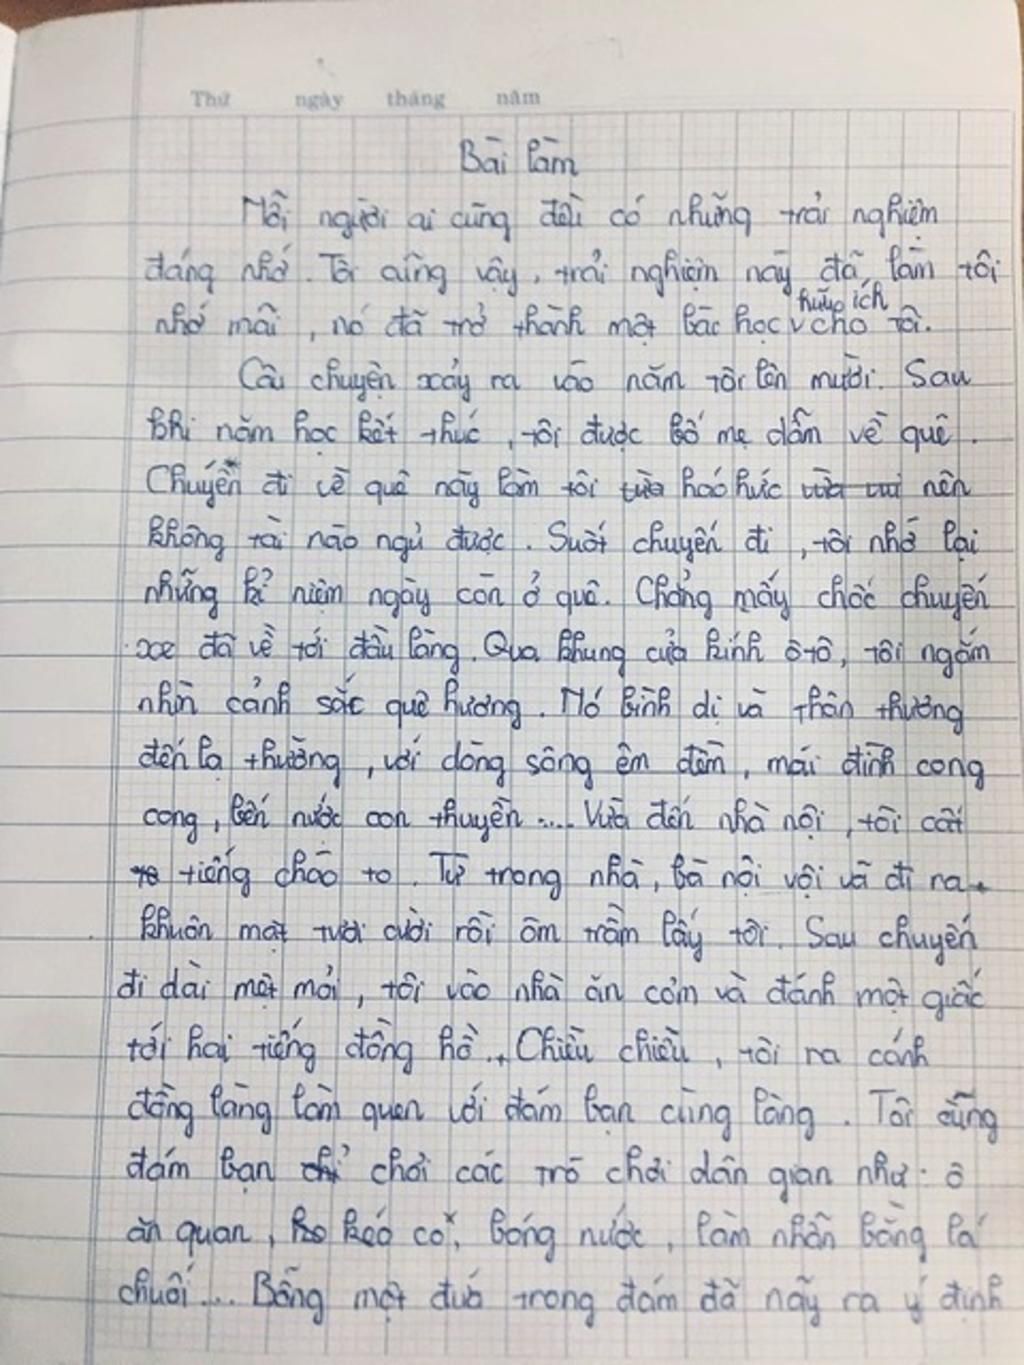 Thứ ngày tháng năm
Bài làm
Mỗi người ai cũng đều có những trải nghiệm
đáng nhớ. Tôi cũng vậy, trải nghiệm này đã làm tôi
nhớ mãi, nó đã trở thành một bài học hữu ích cho tôi.
Câu chuyện xảy ra vào năm tôi lên mười. Sau
khi năm học kết thúc, tôi được bố mẹ dẫn về quê.
Chuyến đi về quê này làm tôi vừa háo hức vừa vui nên
không tài nào ngủ được. Suốt chuyến đi, tôi nhớ lại
những kỉ niệm ngày còn ở quê. Chẳng mấy chốc chuyến
xe đã về tới đầu làng. Qua khung cửa kính ôtô, tôi ngắm
nhìn cảnh sắc quê hương. Nó bình dị và thân thương
đến lạ thường, với dòng sông êm đềm, mái đình cong
cong, bến nước con thuyền.... Vừa đến nhà nội, tôi cất
to tiếng chào to. Từ trong nhà, bà nội vội vã đi ra
khuôn mặt tươi cười rồi ôm trầm lấy tôi. Sau chuyến
đi dài mệt mỏi, tôi vào nhà ăn cơm và đánh một giấc
tới hai tiếng đồng hồ. Chiều chiều, tôi ra cánh
đồng làng làm quen với đám bạn cùng làng. Tôi cũng
đám bạn chỉ chơi các trò chơi dân gian như: ô
ăn quan, kéo co, bóng nước, làm nhẫn bằng lá
chuối... Bỗng một đứa trong đám đã nảy ra ý định